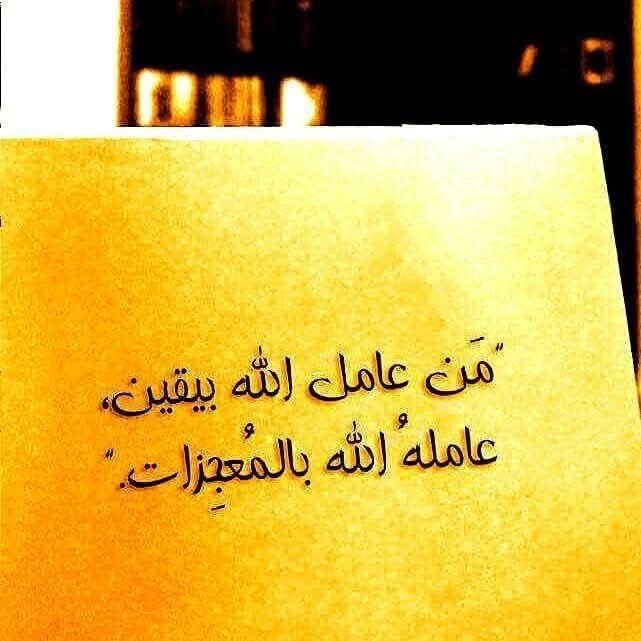 "مَن عامل الله بيقين،
عاملهُ الله بالمُعجِزات."